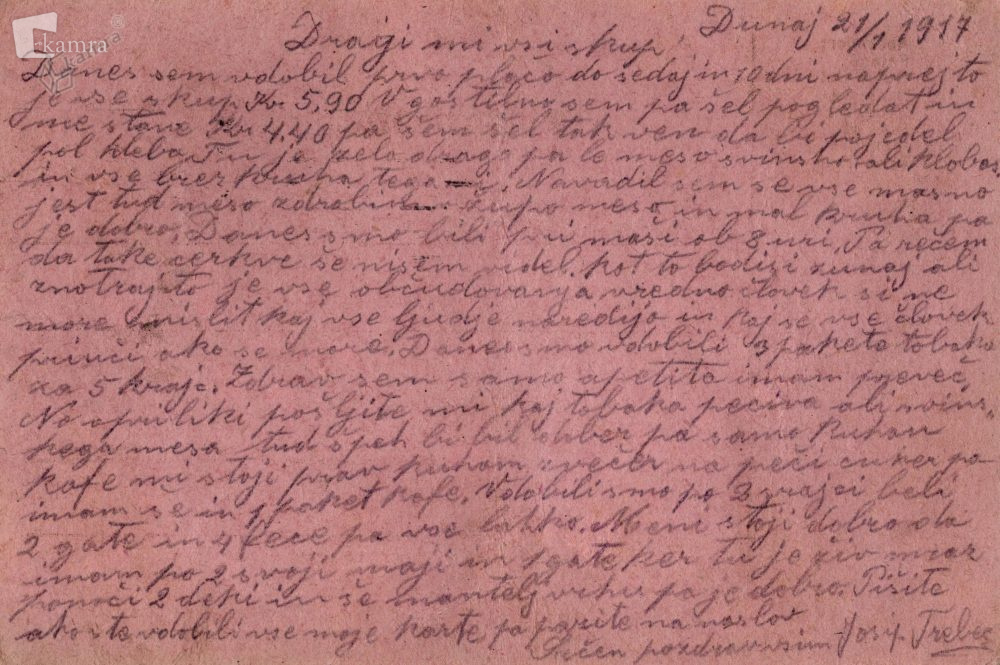 kamra
Dunaj 21/1 1917
Dragi mi vsi skup.
Danes sem vdobil prvo plačo do sedaj in 10 dni naprej to
je vse skup Kr 5,90 V gostilno sem pa šel pogledat in
me stane Kr 4,40 pa sem šel tak ven da bi pojedel
pol hleba. Tu je zelo drago pa le meso svinsko ali klobas
in vse brez kruha tega. Navadil sem se vse masno
jest tud meso zdrobim župo meso in mal kruha pa
je dobro. Danes smo bili pri maši ob 8 uri. Pa rečem
da take cerkve še nisem videl. kot to bodisi zunaj ali
znotraj to je vse občudovanja vredno človek si ne
more mislit kaj vse ljudje naredijo in kaj se vse človek
privči ako se more. Danes smo vdobili 3 pakete tobaka
za 5 krajc. Zdrav sem samo apetita imam preveč
No o priliki pošljite mi kaj tobaka peciva ali svins-
kega mesa tud špeh bi bil dober pa samo kuhan
kafe mi stoji prav kuham zvečer na peči cuker pa
imam še in 1 paket kafe. Vdobili smo po 3 srajci beli
2 gate in 4 pa vse lahko. Meni stoji dobro da
imam po 2 svoji maji in 1 gate ker tu je živ mraz
ponoči 2 deki in še mantelj vrhu pa je dobro. Pišite
ako ste vdobili vse moje karte pa pazite na naslov
Srčen pozdrav vsim Josip Trebec